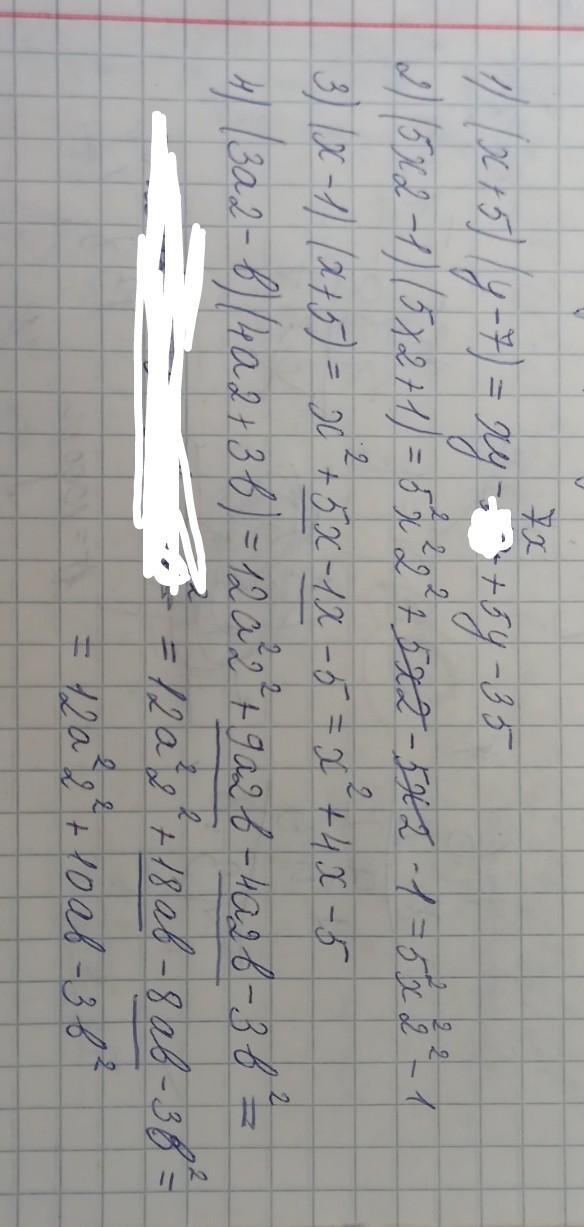 1) (x+5)(y-7) = xy-7x+5y-35
2) (5x2-1)(5x2+1) = 5²x²2²+5x2-5x2-1 = 5²x²2²-1
3) (x-1)(x+5) = x²+5x-1x-5 = x²+4x-5
4) (3a2-b)(4a2+3b) = 12a²2²+9a2b-4a2b-3b² =
= 12a²2²+18ab-8ab-3b² =
= 12a²2²+10ab-3b²